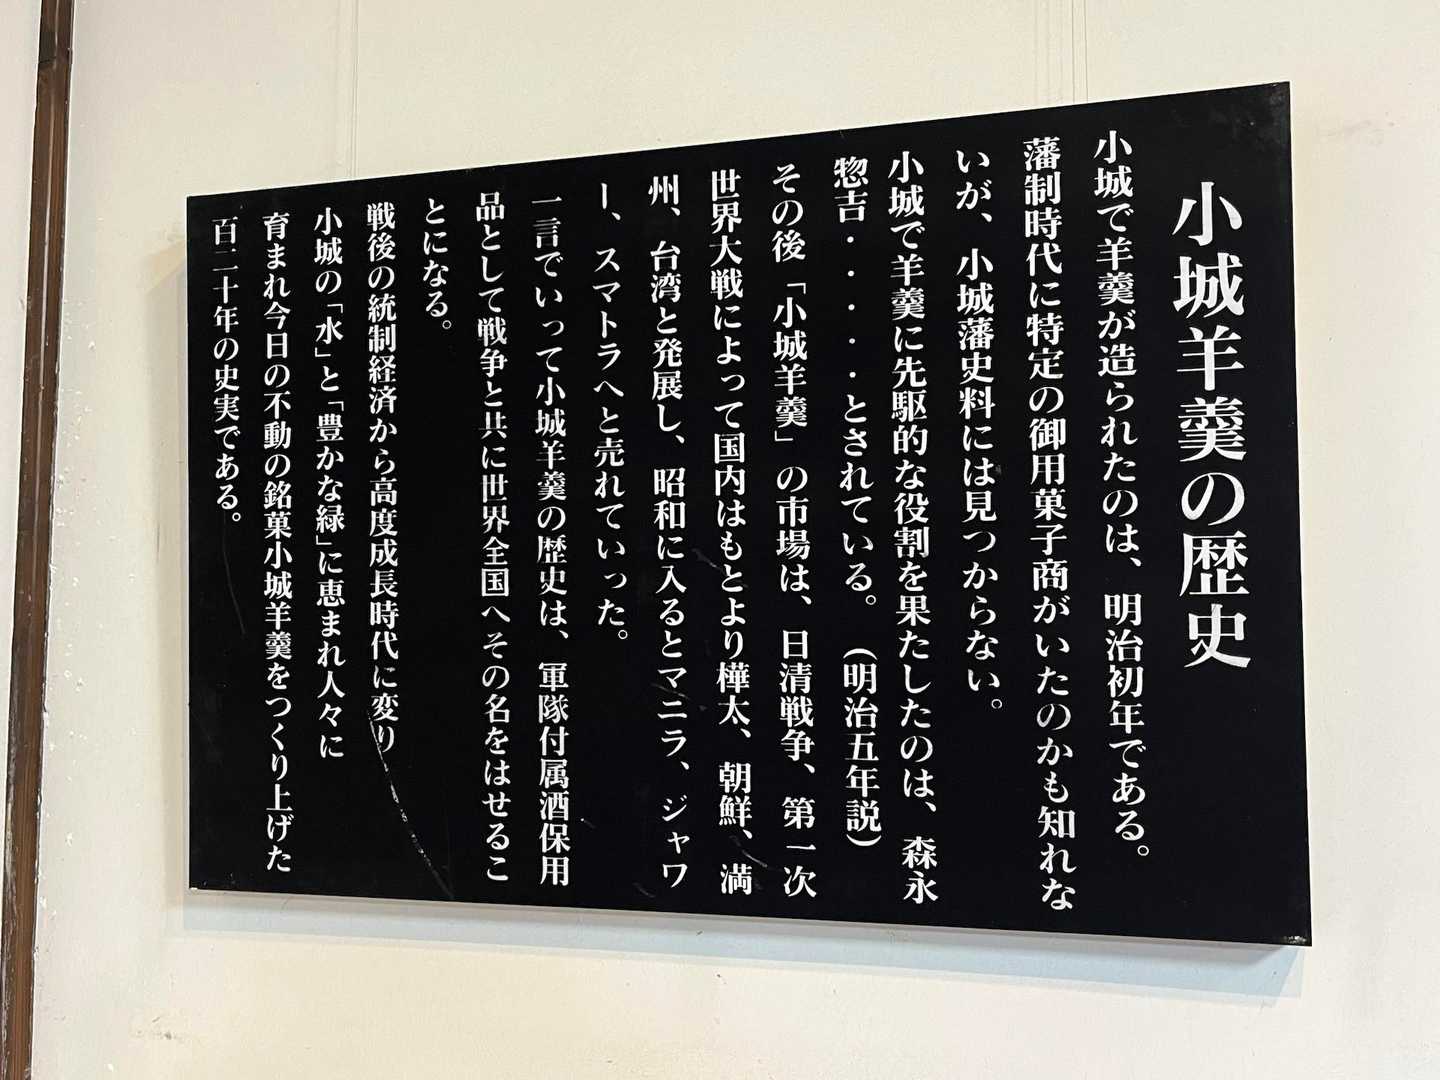 小城羊羹の歴史
小城で羊羹が造られたのは、明治初年である。
藩制時代に特定の御用菓子商がいたのかも知れな
いが、小城藩史料には見つからない。
小城で羊羹に先駆的な役割を果たしたのは、森永
惣吉・・・・・とされている。（明治五年説）
その後「小城羊羹」の市場は、日清戦争、第一次
世界大戦によって国内はもとより樺太、朝鮮、満
州、台湾と発展し、昭和に入るとマニラ、ジャワ
ー、スマトラへと売れていった。
一言でいって小城羊羹の歴史は、軍隊付属酒保用
品として戦争と共に世界全国へその名をはせるこ
とになる。
戦後の統制経済から高度成長時代に変り
小城の「水」と「豊かな緑」に恵まれ人々に
育まれ今日の不動の銘菓小城羊羹をつくり上げた
百二十年の史実である。